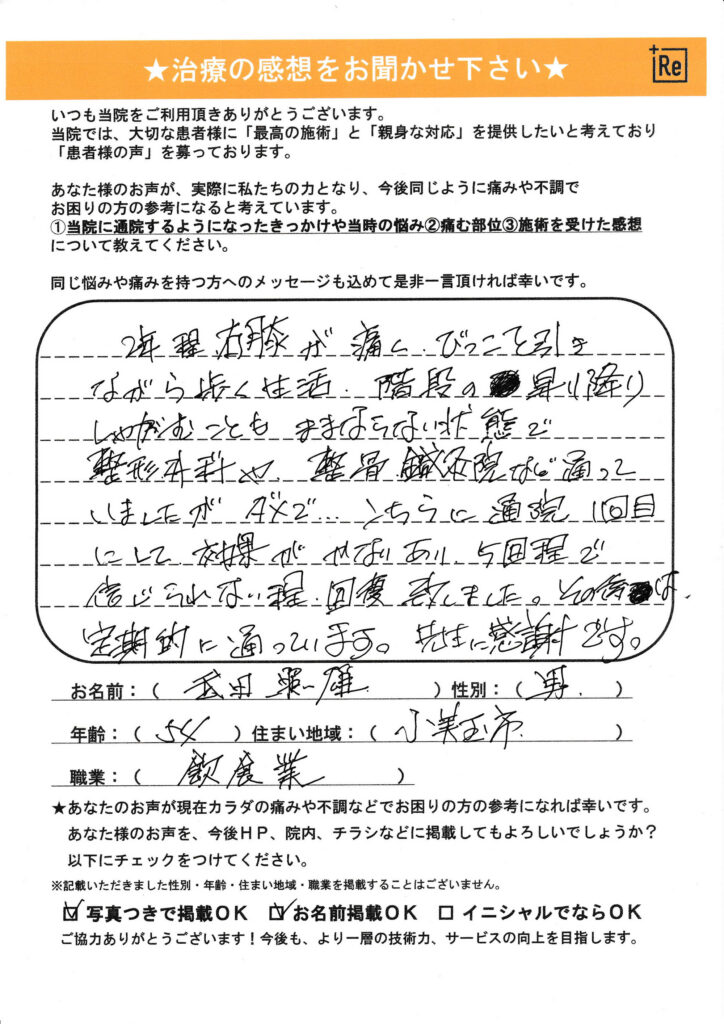 ★治療の感想をお聞かせ下さい★
+Re
いつも当院をご利用頂きありがとうございます。
当院では、大切な患者様に「最高の施術」と「親身な対応」を提供したいと考えており
「患者様の声」を募っております。
あなた様のお声が、実際に私たちの力となり、今後同じように痛みや不調で
お困りの方の参考になると考えています。
①当院に通院するようになったきっかけや当時の悩み②痛む部位③施術を受けた感想
について教えてください。
同じ悩みや痛みを持つ方へのメッセージも込めて是非一言頂ければ幸いです。
2年程 右膝が痛く、びっこを引き
ながら歩く生活、階段の昇り降り
しゃがむこともままならない状態で
整形外科や、整骨鍼灸院など通って
いましたがダメで…こちらに通院1回目
にして効果がかなりあり、5回程で
信じられない程、回復致しました。その後は、
定期的に通っています。先生に感謝です。
お名前：（ 武田 雄 ）性別：（ 男 ）
年齢：（ 54 ）住まい地域：（ 小美玉市 ）
職業：（ 飲食業 ）
★あなたのお声が現在カラダの痛みや不調などでお困りの方の参考になれば幸いです。
あなた様のお声を、今後HP、院内、チラシなどに掲載してもよろしいでしょうか？
以下にチェックをつけてください。
※記載いただきました性別・年齢・住まい地域・職業を掲載することはございません。
☑ 写真つきで掲載OK ☑ お名前掲載OK □ イニシャルでならOK
ご協力ありがとうございます！今後も、より一層の技術力、サービスの向上を目指します。